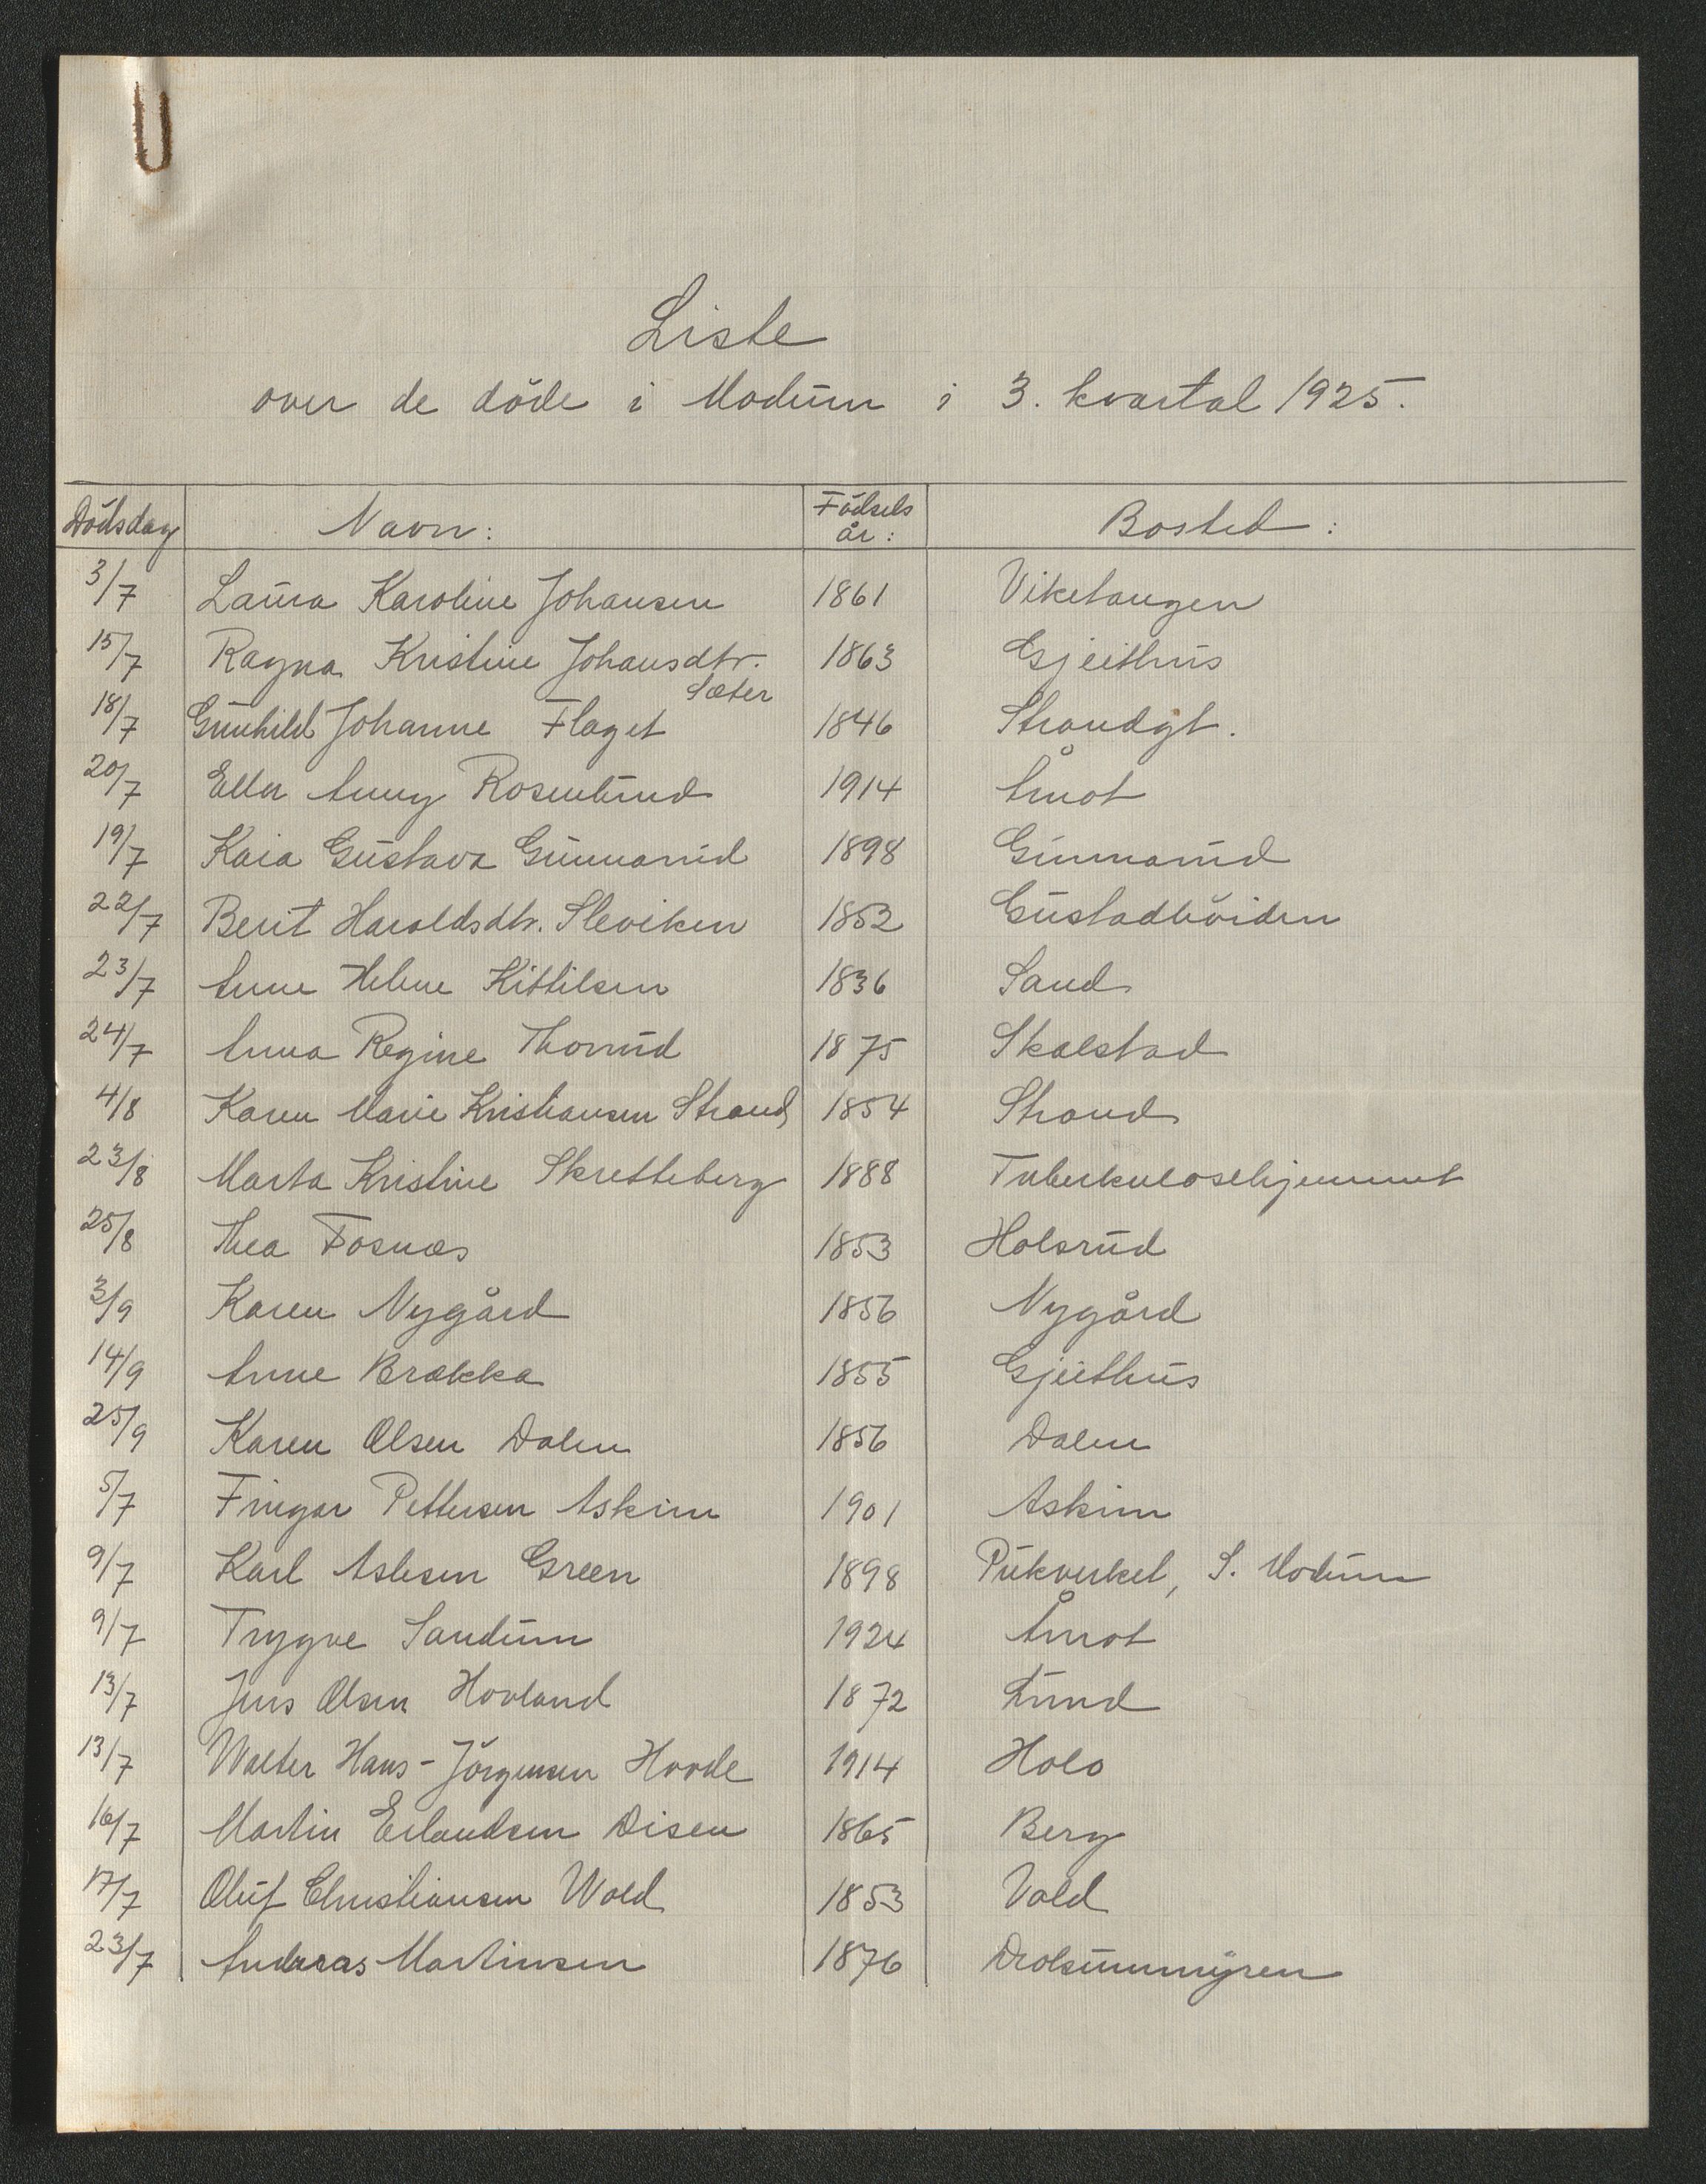 Liste
over de döde i Modum i 3. kvartal 1925.
Dödsdag Navn: Födsels år: Bosted:
3/7 Laura Karoline Johansen 1861 Viketangen
15/7 Ragna Kristine Johansdtr. Sæter 1863 Gjeithus
18/7 Gunhild Johanne Flaget 1846 Strandgt.
20/7 Ella Anny Rosenlund 1914 Åmot
19/7 Kaia Gustava Gunnarud 1898 Gunnarud
22/7 Berit Haraldsdtr. Sleviken 1852 Gustadhöiden
23/7 Anne Helene Kittilsen 1836 Sand
24/7 Anna Regine Thorrud 1875 Skalstad
4/8 Karen Marie Kristiansen Strand 1854 Strand
23/8 Marta Kristine Skretteberg 1888 Tuberkulosehjemmet
25/8 Thea Fosnæs 1853 Holsrud
3/9 Karen Nygård 1856 Nygård
14/9 Anne Brækka 1855 Gjeithus
25/9 Karen Olsen Dalen 1856 Dalen
5/7 Fingar Pettersen Askim 1901 Askim
9/7 Karl Aslesen Green 1898 Pukverket, S. Modum
9/7 Trygve Sandum 1924 Åmot
13/7 Jens Olsen Hovland 1872 Lund
13/7 Walter Hans-Jörgensen Hovde 1914 Holo
16/7 Martin Erlandsen Disen 1865 Berg
17/7 Oluf Christiansen Wold 1853 Vald
23/7 Andreas Martinsen 1876 Drolsummyren